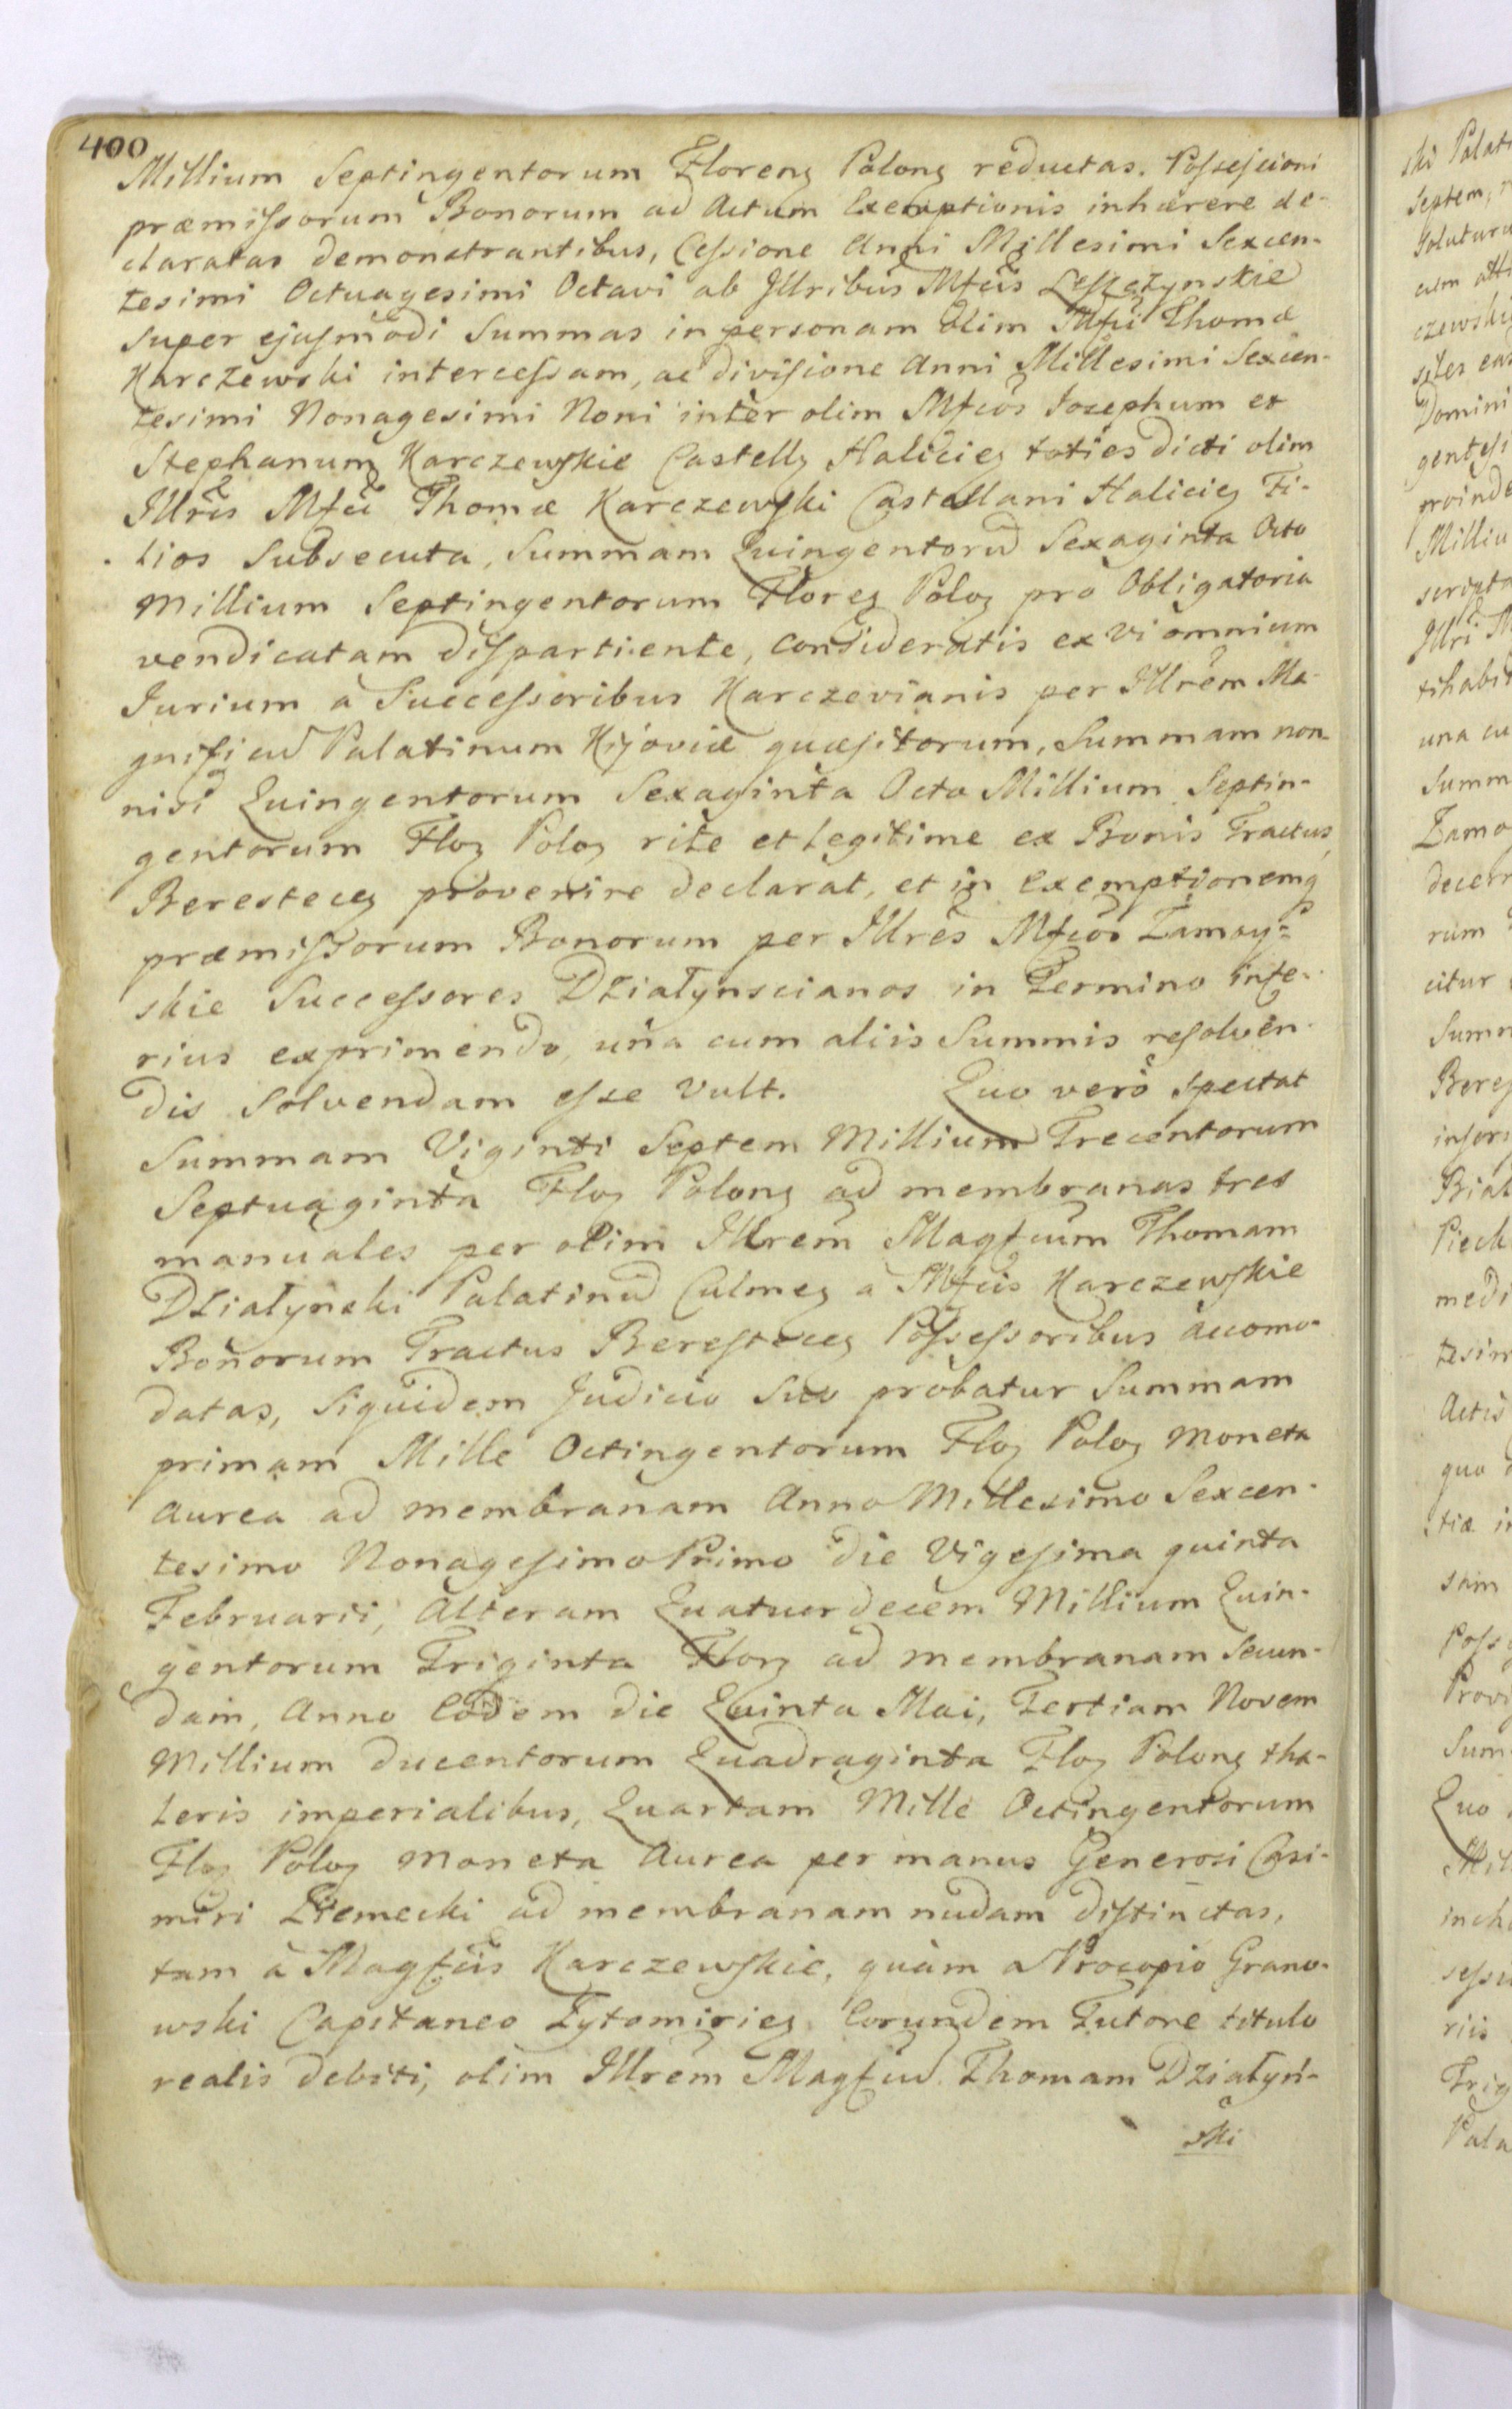 400
Millium Septingentorum Floren͠ Polon͠ reductas. Possessioni
præmissorum Bonorum ad Actum Exemptionis inhærere de-
claratas demonstrantibus, Cessione Anni Millesimi Sexcen-
tesimi Octuagesimi Octavi ab Illribus Mfcis Leszczynskie
super ejusmodi Summas in personam olim Mfci Thomæ
Karczewski intercessam, ac divisione Anni Millesimi Sexcen-
tesimi Nonagesimi Noni inter olim Mfcos Josephum et
Stephanum Karczewskie Castell͠ Halicien͠ toties dicti olim
Illris Mfci Thomæ Karczewski Castellani Halicien͠ Fi-
lios Subsecuta, Summam Quingentoru͠ Sexaginta Octo
Millium Septingentorum Floren͠ Polon͠ pro Obligatoria
vendicatam dispartiente, consideratis ex vi omnium
Jurium a Successoribus Karczevianis per Illrem Ma-
gnificu͠ Palatinum Kijoviæ quæsitorum, Summam non
nisi Quingentorum Sexaginta Octo Millium Septin-
gentorum Flo͠ Polo͠ rite et legitime ex Bonis Tractus
Berestecen͠ provenire declarat, et in exemptionemq͠
præmissorum Bonorum per Illres Mfcos Zamoy-
skie Successores Działynscianos in Termino infe-
rius exprimendo, una cum aliis Summis resolven-
dis Solvendam esse vult. Quo verò spectat
Summam Viginti Septem Millium Trecentorum
Septuaginta Flo͠ Polon͠ ad membranas tres
manuales per olim Illrem Magfcum Thomam
Działynski Palatinu͠ Culmen͠ a Mfcis Karczewskie
Bonorum Tractus Berestecen͠ Possessoribus accomo-
datas, Siquidem Judicio Suo probatur Summam
primam Mille Octingentorum Flo͠ Polo͠ moneta
aurea ad membranam Anno Millesimo Sexcen-
tesimo Nonagesimo Primo die Vigesima quinta
Februarii, Alteram Quatuordecem Millium Quin-
gentorum Triginta Flor͠ ad membranam secun-
dam, Anno Eodem die Quinta Mai, Tertiam Novem
Millium ducentorum Quadraginta Flo͠ Polon͠ tha-
leris imperialibus, Quartam Mille Octingentorum
Flo͠ Polo͠ moneta Aurea per manus Generosi Casi-
miri Ziemecki ad membranam nudam distinctas,
tam à Magfcis Karczewskie, quàm a Procopio Grano-
wski Capitaneo Zytomirien͠ Eorundem Tutore titulo
realis debiti, olim Illrem Magfcu͠ Thomam Działyń-
ski